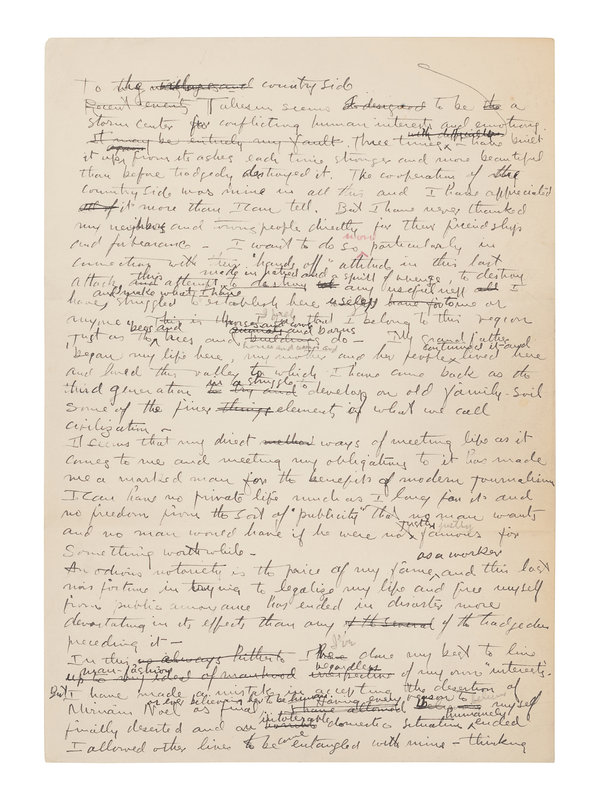 To the countryside
Recent events Taliesin seems designed to be the a
storm center for conflicting human interests and emotions.
with difficulties
It may be entirely my fault. Three times I have built
again
it up from its ashes each time stronger and more beautiful
than before tragedy destroyed it. The cooperation of the
countryside was mine in all this and I have appreciated
it more than I can tell. But I have never thanked
my neighbors and townspeople directly for their friendship
now
and forbearance – I want to do so, particularly in
connection with their "hands off" attitude in this last
this made in hatred and a spirit of revenge to destroy
attack and attempt to destroy any usefulness I
and make what I have
have struggled to establish here useless to me or
anyone – This is that I belong to this region
bees and animals and barns
just as the trees and building do – My Grandfather
horses and cows and
began my life here, my mother and her people lived here
and loved this valley to which I have come back as the
third generation in a struggle to develop on old family-soil
Some of the finer things elements of what we call
civilization –
It seems that my direct method ways of meeting life as it
comes to me and meeting my obligations to it has made
me a marked man for the benefits of modern journalism
I can have no private life much as I long for it and
no freedom from the sort of "publicity" that no man wants
justly justly
and no man would have if he were not famous for
Something worthwhile –
as a worker
An odious notoriety is the price of my fame, and this last
misfortune in trying to legalize my life and free myself
from public annoyance has ended in disaster more
devastating in its effects than any of the several of the tragedies
preceding it –
I've
In this as always hitherto I have done my best to live
man-fashion regardless
up to my ideal of manhood irrespective of my own "interests."
But I have made a mistake in accepting the desertion of
or ever believing her to be human. Having every reason to
Miriam Noel as final I have myself
intolerable humanely
finally deserted and an domestic situation ended
I allowed other lives to become entangled with mine – thinking